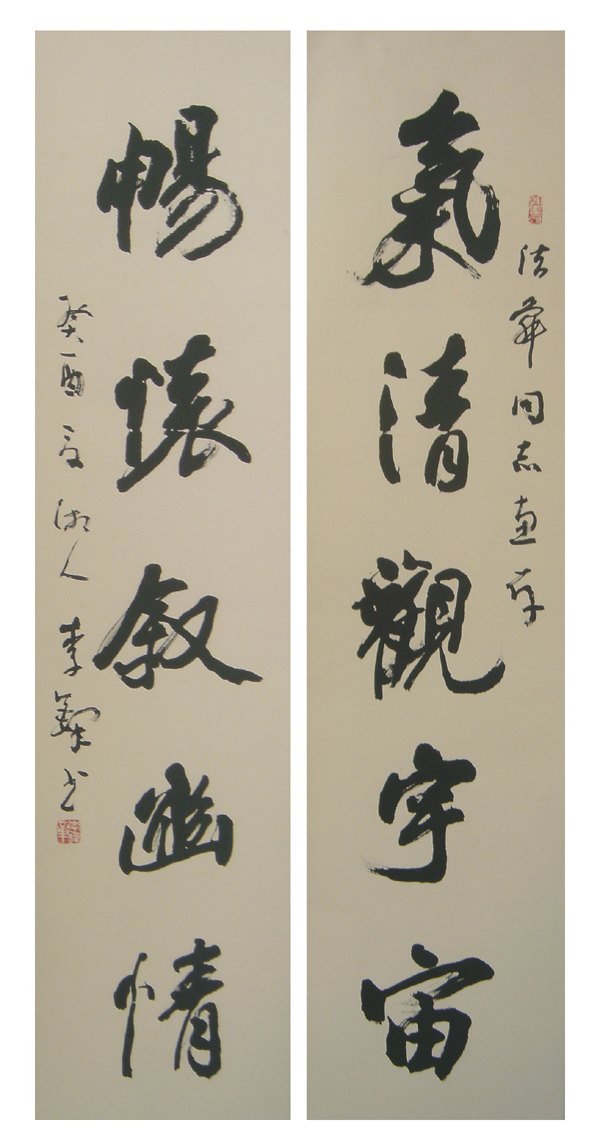 同志惠存
氣清觀宇宙
暢懷叙幽情
癸酉夏湘人李鐸书